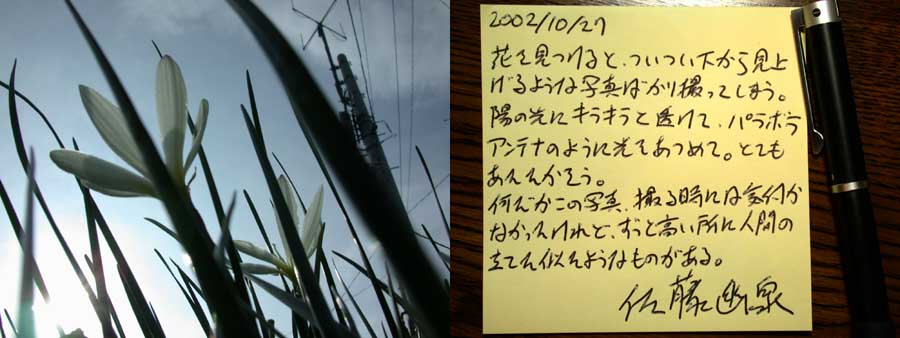 2002/10/27
花を見つけると、ついつい下から見上
げるような写真ばかり撮ってしまう。
陽の光にキラキラと透けて、パラボラ
アンテナのように光をあつめて。とても
あたたかそう。
何だかこの写真、撮る時には気付か
なかったけれど、ずっと高い所に人間の
立てた似たようなものがある。
佐藤幽泉